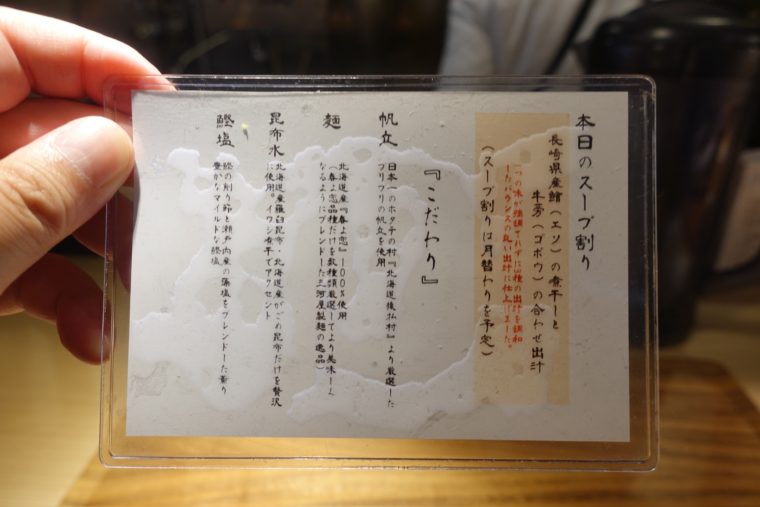 本日のスープ割り
長崎県産鱛（エソ）の煮干しと
牛蒡（ゴボウ）の合わせ出汁
一つの味が強調されずに3種の出汁を調和
したバランスの良い出汁に仕上げました。
（スープ割りは月替わりを予定）
『こだわり』
帆立
日本一のホタテの村『北海道猿払村』より厳選した
プリプリの帆立を使用
麺
北海道産『春よ恋』100%使用
（春よ恋品種だけを数種類厳選してより美味しく
なるようにブレンドした三河屋製麺の逸品）
昆布水
北海道産羅臼昆布・北海道産がごめ昆布だけを贅沢
に使用、イワシ煮干でアクセント
鰹塩
鰹の削り節と瀬戸内産の藻塩をブレンドした香り
豊かなマイルドな鰹塩